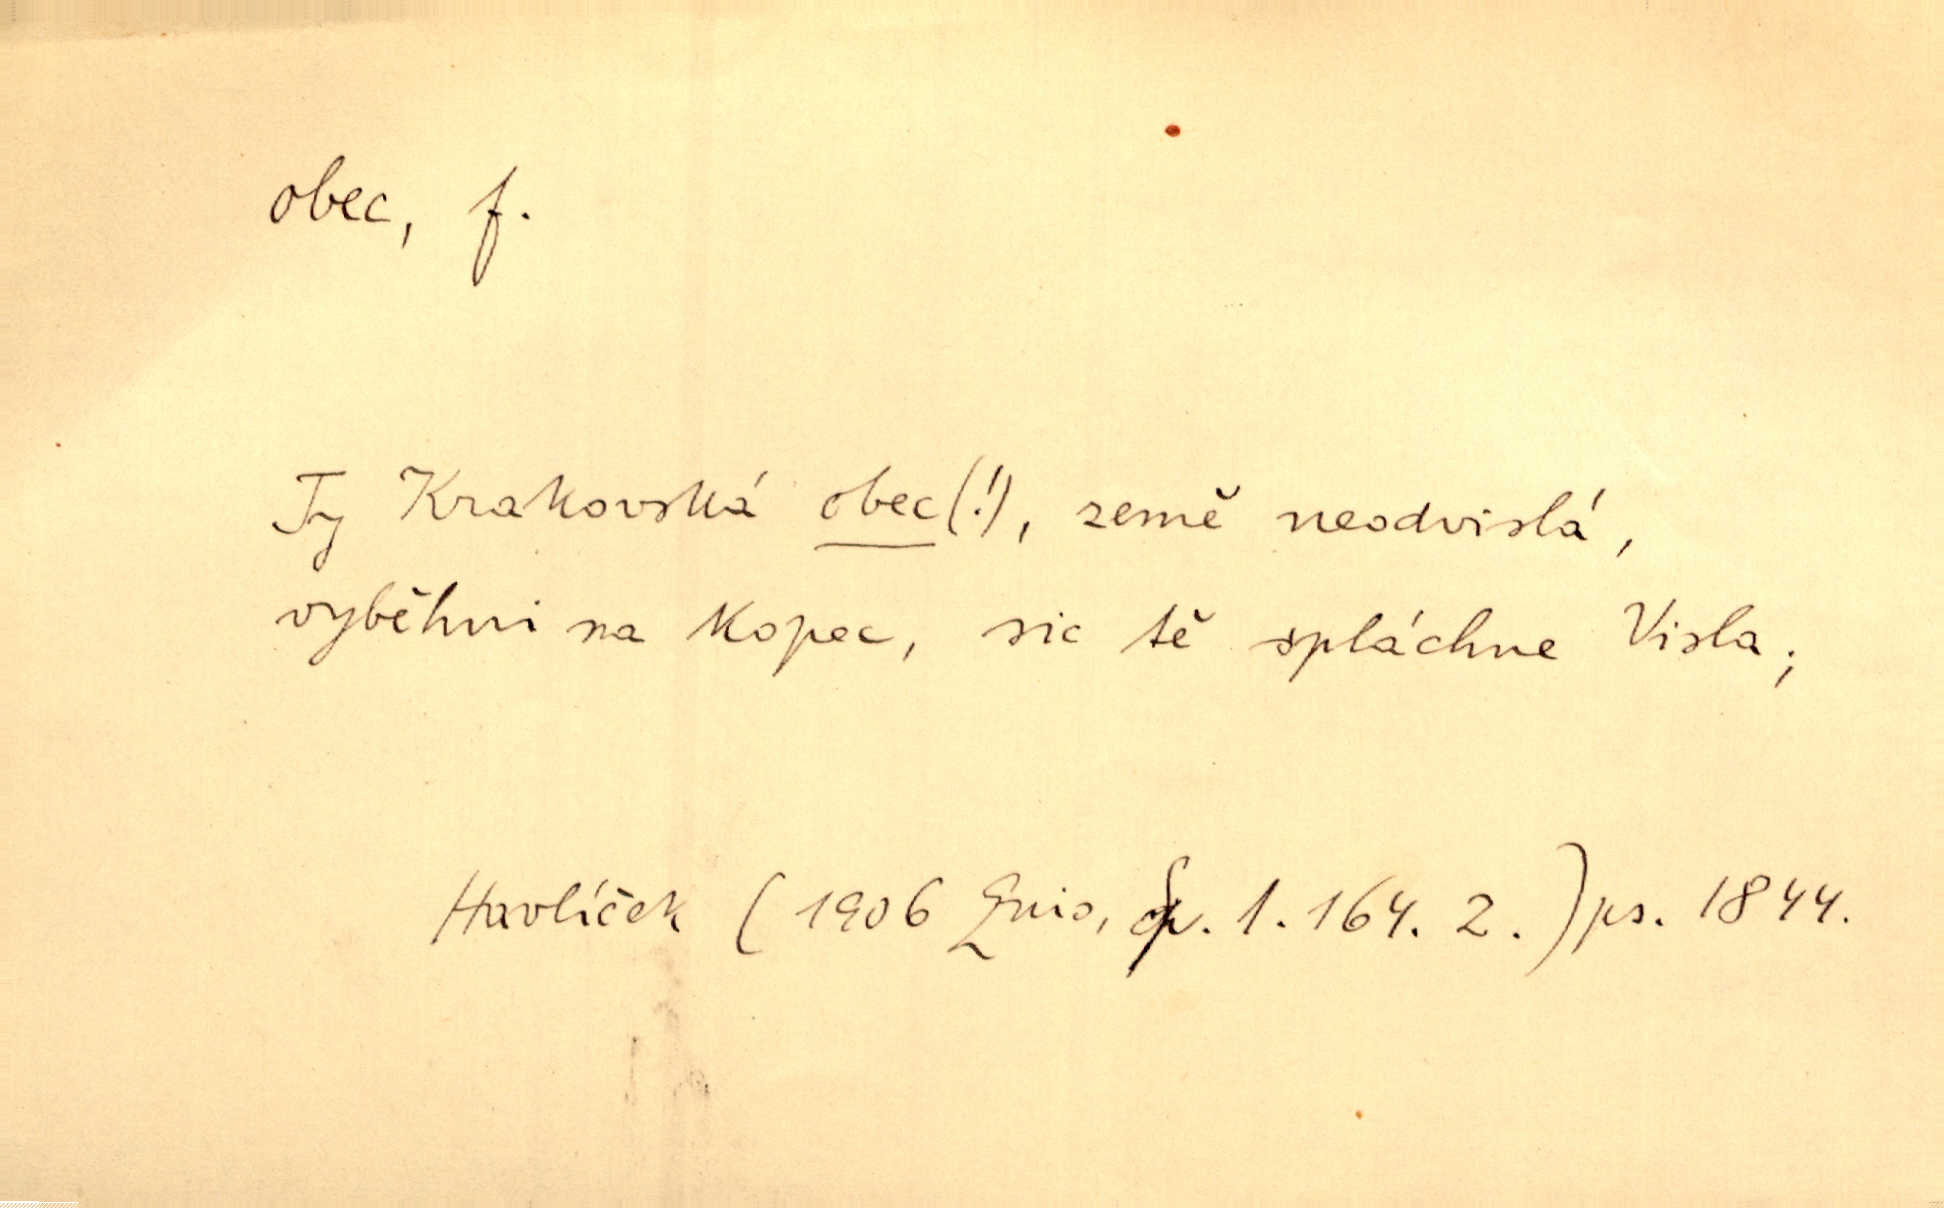 obec, f.
Ty Krakovská obec(!), země neodvislá,
vyběhni na kopec, sic tě spláchne Visla;
Havlíček (1906 Quis, Sp. 1. 164. 2.) ps. 1844.